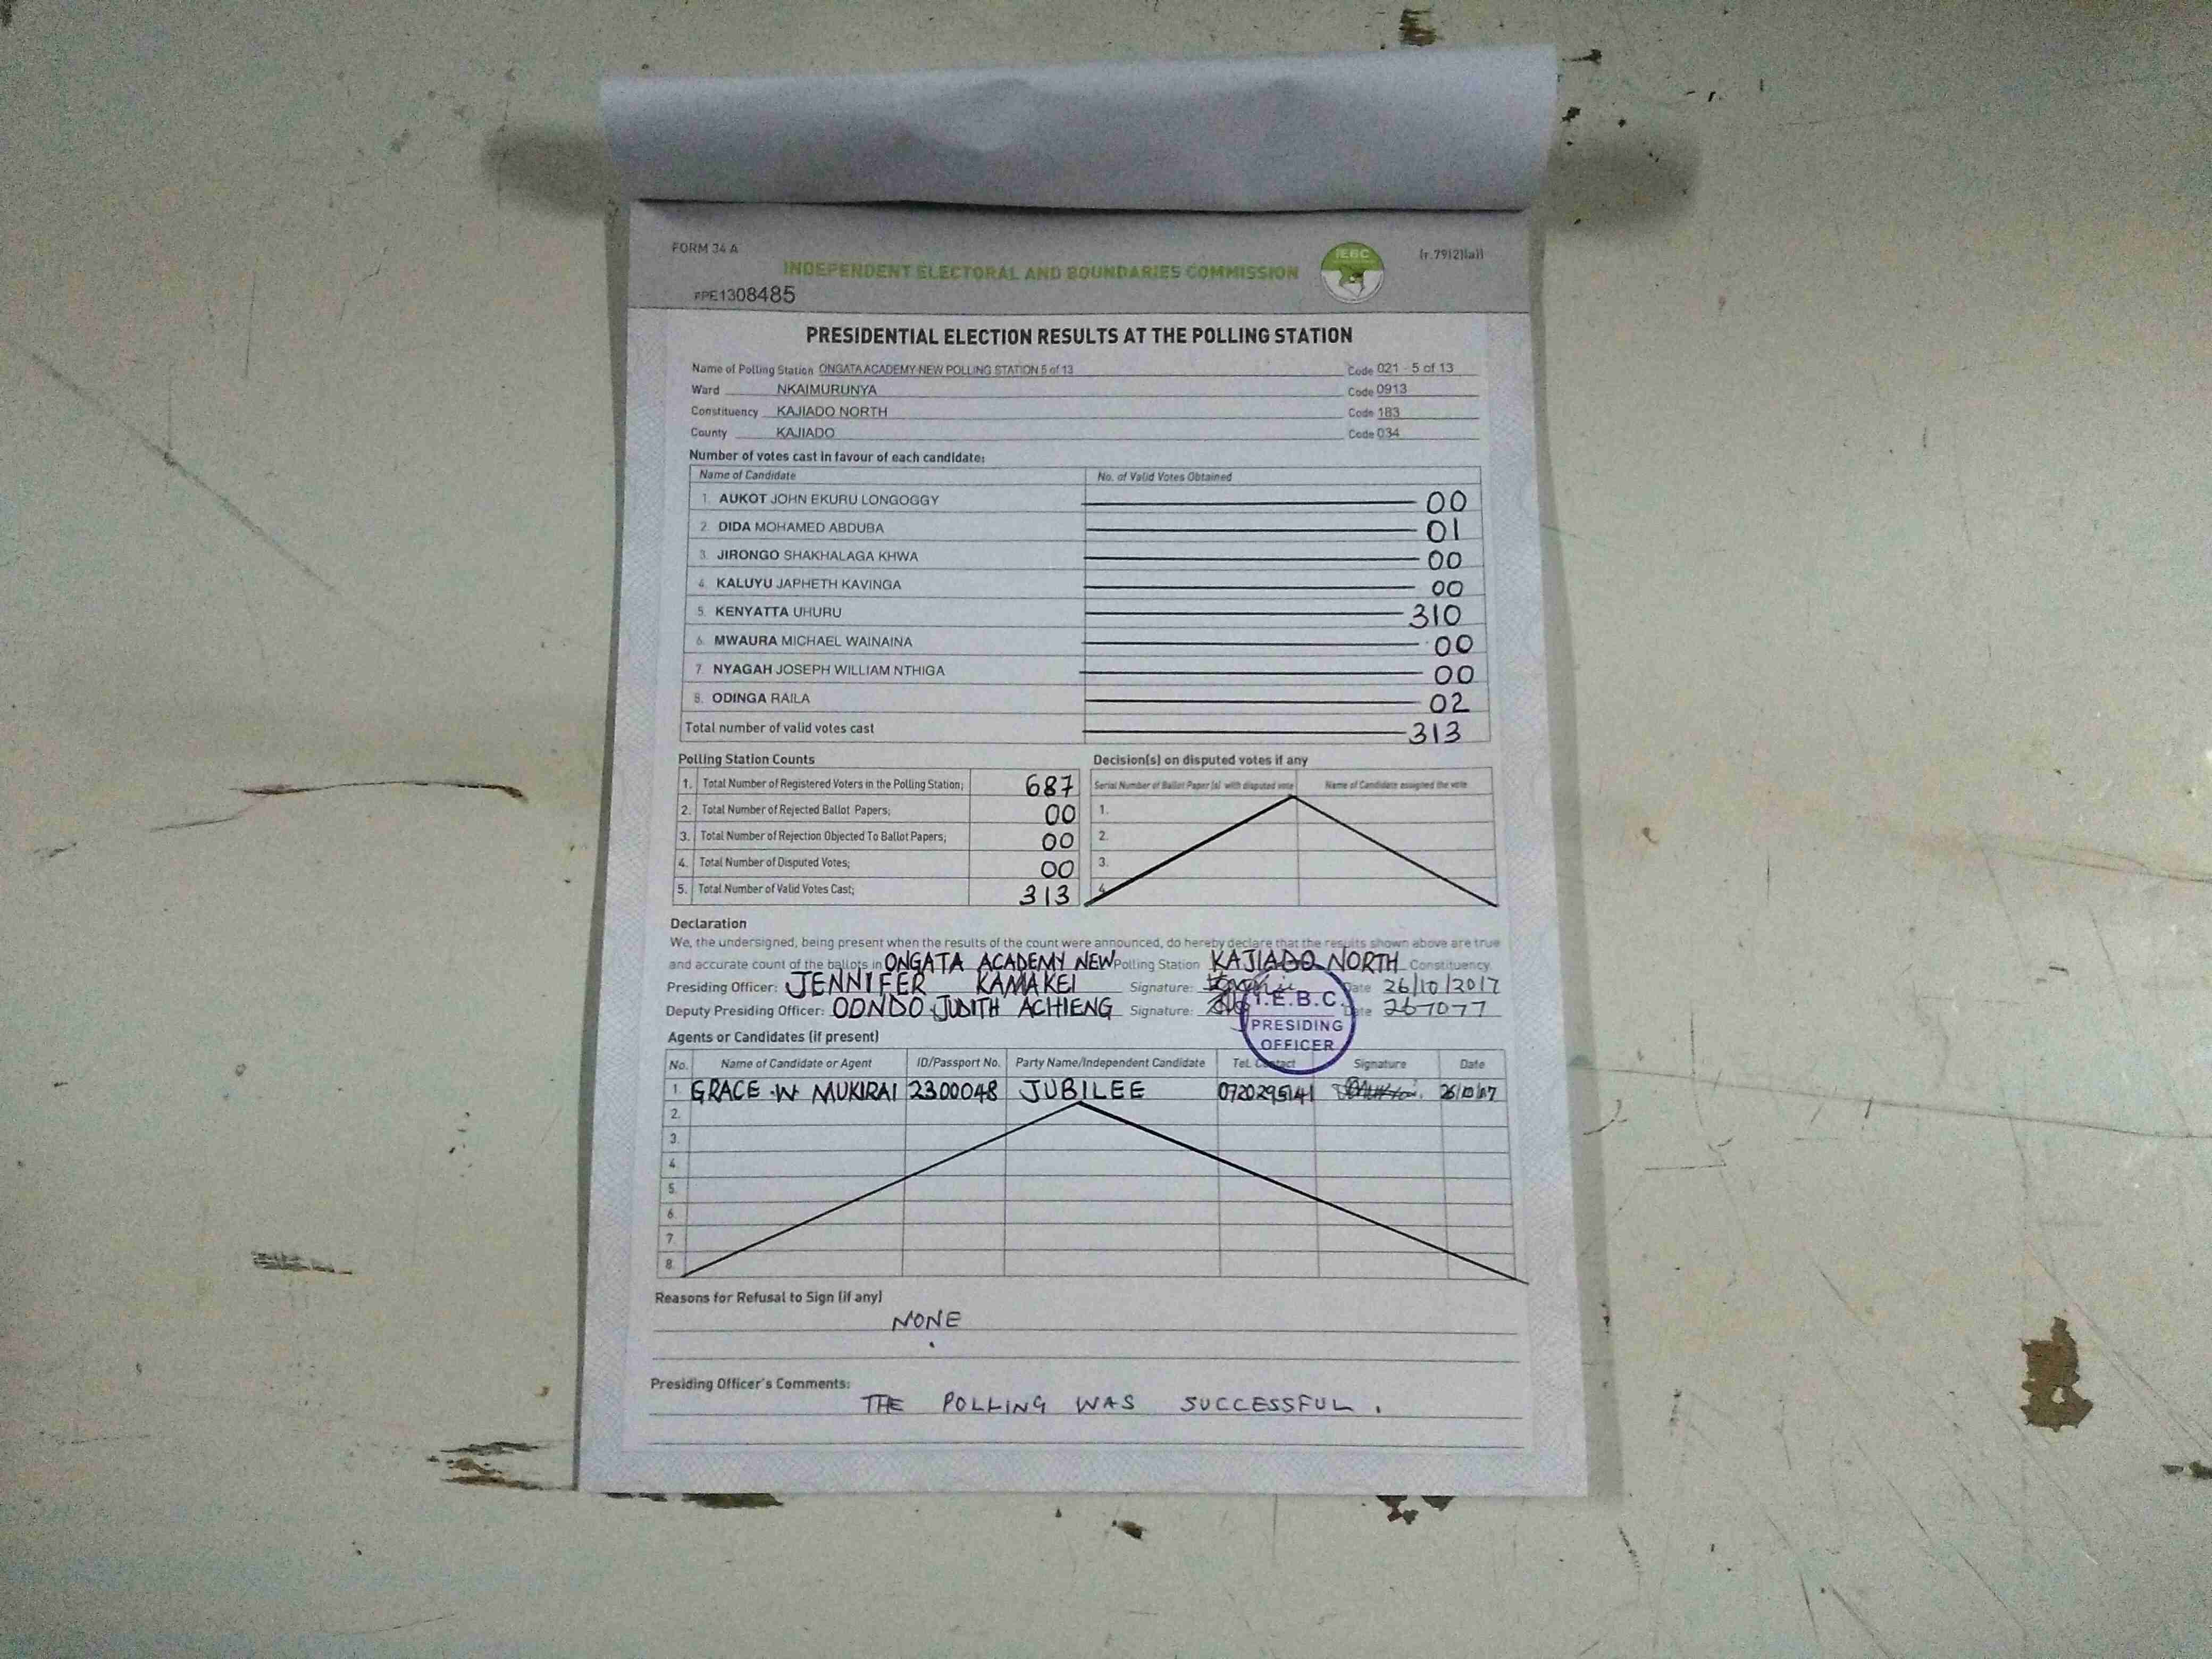 FORM 34 A
(r.79(2)(a))
IEBC
INDEPENDENT ELECTORAL AND BOUNDARIES COMMISSION
PPE1308485
PRESIDENTIAL ELECTION RESULTS AT THE POLLING STATION
Name of Polling Station ONGATA ACADEMY-NEW POLLING STATION 5 of 13 Code 021 - 5 of 13
Ward NKAIMURUNYA Code 0913
Constituency KAJIADO NORTH Code 183
County KAJIADO Code 034
Number of votes cast in favour of each candidate:
Name of Candidate No. of Valid Votes Obtained
1. AUKOT JOHN EKURU LONGOGGY 00
2. DIDA MOHAMED ABDUBA 01
3. JIRONGO SHAKHALAGA KHWA 00
4. KALUYU JAPHETH KAVINGA 00
5. KENYATTA UHURU 310
6. MWAURA MICHAEL WAINAINA 00
7. NYAGAH JOSEPH WILLIAM NTHIGA 00
8. ODINGA RAILA 02
Total number of valid votes cast 313
Polling Station Counts
1. Total Number of Registered Voters in the Polling Station; 687
2. Total Number of Rejected Ballot Papers; 00
3. Total Number of Rejection Objected To Ballot Papers; 00
4. Total Number of Disputed Votes; 00
5. Total Number of Valid Votes Cast; 313
Decision(s) on disputed votes if any
Serial Number of Ballot Paper (s) with disputed vote Name of Candidate assigned the vote
1.
2.
3.
4.
Declaration
We, the undersigned, being present when the results of the count were announced, do hereby declare that the results shown above are true
and accurate count of the ballots in ONGATA ACADEMY NEW Polling Station KAJIADO NORTH Constituency
Presiding Officer: JENNIFER KAMAKEI Signature: Date 26/10/2017
Deputy Presiding Officer: ODNDO JUDITH ACHIENG Signature: Date 267077
I.E.B.C.
PRESIDING
OFFICER
Agents or Candidates (if present)
No. Name of Candidate or Agent ID/Passport No. Party Name/Independent Candidate Tel. Contact Signature Date
1 GRACE W MUKIRAI 2300048 JUBILEE 0720295141 26/10/17
2.
3.
4.
5.
6.
7.
8.
Reasons for Refusal to Sign (if any)
NONE
Presiding Officer's Comments:
THE POLLING WAS SUCCESSFUL.